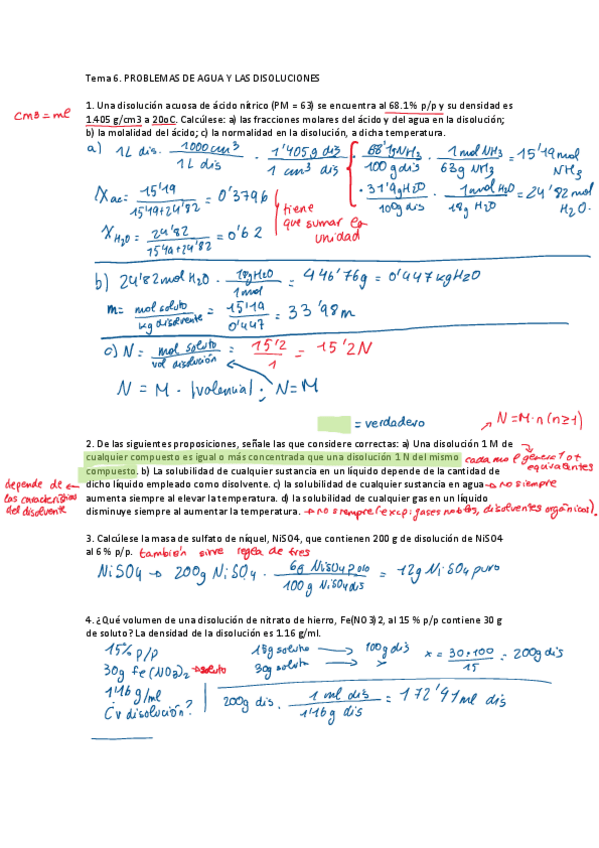 Tema 6. PROBLEMAS DE AGUA Y LAS DISOLUCIONES
1. Una disolución acuosa de ácido nítrico (PM = 63) se encuentra al 68.1% p/p y su densidad es
cm3 = ml
1.405 g/cm3 a 20oC. Calcúlese: a) las fracciones molares del ácido y del agua en la disolución;
b) la molalidad del ácido; c) la normalidad en la disolución, a dicha temperatura.
a) 1L dis. 1000cm³ / 1L dis · 1'405g dis / 1 cm³ dis · 68'1gNH3 / 100 g dis · 1mol NH3 / 63g NH3 = 15'19mol NH3
· 31'9gH2O / 100g dis · 1mol H2O / 18g H2O = 24'82 mol H2O.
Xac = 15'19 / 15'19+24'82 = 0'3796
XH2O = 24'82 / 15'19+24'82 = 0'62
tiene
que sumar la
unidad
b) 24'82mol H2O · 18gH2O / 1mol = 446'76g = 0'447kgH2O
m = mol soluto / kg disolvente = 15'19 / 0'447 = 33'98m
c) N = mol soluto / vol disolución = 15'2 / 1 = 15'2N
N = M · |valencia| ; N=M
= verdadero
N=M·n (n≥1)
2. De las siguientes proposiciones, señale las que considere correctas: a) Una disolución 1 M de
cualquier compuesto es igual o más concentrada que una disolución 1 N del mismo
cada mol genera 1 o +
equivalentes
compuesto. b) La solubilidad de cualquier sustancia en un líquido depende de la cantidad de
depende de
las características
del disolvente
dicho líquido empleado como disolvente. c) la solubilidad de cualquier sustancia en agua → no siempre
aumenta siempre al elevar la temperatura. d) la solubilidad de cualquier gas en un líquido
disminuye siempre al aumentar la temperatura. → no siempre (excp: gases nobles, disolventes orgánicos).
3. Calcúlese la masa de sulfato de níquel, NiSO4, que contienen 200 g de disolución de NiSO4
al 6 % p/p. también sirve regla de tres
NiSO4 → 200g NiSO4 · 6g NiSO4 puro / 100g NiSO4dis = 12g NiSO4 puro
4. ¿Qué volumen de una disolución de nitrato de hierro, Fe(NO3)2, al 15 % p/p contiene 30 g
de soluto? La densidad de la disolución es 1.16 g/ml.
15% p/p
30g Fe(NO3)2 → soluto
1'16 g/ml
¿v disolución?
15g soluto → 100g dis
30g soluto → x
x = 30·100 / 15 = 200g dis
200g dis. · 1 ml dis / 1'16g dis = 172'41ml dis